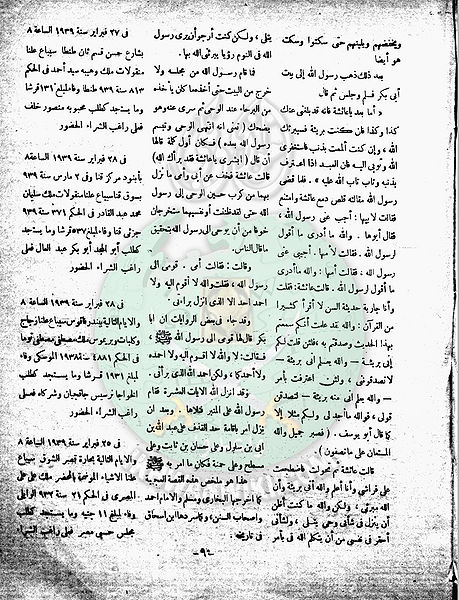 ويخفضهم ويليهم حتى سكتوا وسكت
هو أيضا
بعد ذلك ذهب رسول الله إلى بيت
أبى بكر فسلم وجلس ثم قال
« أما بعد ياعائشة فانه قد بلغنى عنك
كذا وكذا فان كنت بريئة فسيبرئك
الله ، وإن كنت ألممت بذنب فاستغفرى
الله وتوبى اليه فان العبد اذا اعترف
بذنبه وتاب تاب الله عليه » . فلما قضى
رسول الله مقالته قلص دمع عائشة
وقالت لابيها : أجب عنى رسول الله ،
فقال أبوها . والله ما أدرى ما أقول
لرسول الله . فقالت لأمها . أجيبى عنى
رسول الله ، فقالت أمها : والله ما أدرى
ما أقول لرسول الله . قالت عائشة : فقلت
وأنا جارية حديثة السن لا أقرأ كثيرا
من القرآن : والله لقد علمت أنكم سمعتم
بهذا الحديث وصدقتم به ، فلئن قلت لكم
إنى بريئة — والله يعلم إنى بريئة —
لا تصدقونى ، ولئن اعترفت بأمر
— والله يعلم أنى منه بريئة — لتصدقن
قولى ، فوالله ما أجد لى ولكم مثلا إلا
كما قال أبو يوسف . ( فصبر جميل والله
المستعان على ما تصفون ) .
قالت عائشة ثم تحولت فاضطجعت
على فراشى وأنا أعلم والله أنى بريئة وأن
الله مبرئى ، ولكن والله ما كنت أظن
أن ينزل فى شأنى وحى يتلى ، ولشأنى
أحقر فى نفسى من أن يتكلم الله فى بأمر
يتلى ، ولكن كنت أرجو أن يرى رسول
الله فى النوم رؤيا يبرئنى الله بها .
فما قام رسول الله من مجلسه ولا
خرج من البيت حتى أخذه ما كان يأخذه
من البرحاء عند الوحى ثم سرى عنه وهو
يضحك ( تعنى انه انتهى الوحى وتبسم
رسول الله بعده ) فكان أول كلمة قالها
أن قال ( أبشرى ياعائشة فقد برأك الله )
قالت عائشة
بهما من كرب حنين الوحى إلى رسول
الله حتى لقد ظننت أن نفسيهما ستخرجان
خوفا من أن يوحى الى رسول الله بتحقيق
ما قال الناس .
وقالت : فقالت أمى . قومى الى
رسول الله ، فقلت والله لا أقوم اليه ولا
احمد احدا الا الذى انزل براءتى .
وقد جاء . فى بعض الروايات ان ابا
بكر قال لها قومى الى رسول الله ﷺ ،
فقالت : لا والله لا اقوم اليه ولا احمده
ولا أحمدكما ، ولكن احمد الله الذى برأنى .
وقد انزل الله الآيات العشرة فقام
رسول الله على المنبر فتلاها . وبعد ان
نزل امر باقامة حد القذف على عبد الله بن
ابى بن سلول وعلى حسان بن ثابت وعلى
مسطح وعلى حمنة فكان ما امر به ﷺ
هذا هو ملخص هذه القصة الصحيحة
كما اخرجها البخارى ومسلم والامام احمد
واصحاب السنن ، وكما سردها ابن اسحاق
فى تاريخه .
فى ٢٧ فبراير سنة ١٩٣٩ الساعة ٨
بشارع حسن قسم ثان طنطا سيباع علنا
منقولات ملك وهبيه سيد أحمد فى الحكم
٨١٣ سنة ٩٣٩ طنطا وفاء لمبلغ ١٣١ قرشا
وما يستجد كطلب محبوبه منصور خلف
فعلى راغب الشراء الحضور
فى ٢٨ فبراير سنة ١٩٣٩ الساعة ٨
بأبنود مركز قنا وفى ٢ مارس سنة ٩٣٩
بسوق قنا سيباع علنا منقولات ملك سليمان
محمد عبد القادر فى الحكم ٣٧١ سنة ٩٣٩
جزئى قنا وفاء لمبلغ ٥٣٧ قرشا وما يستجد
كطلب أبو المجد أبو بكر عبد العال فعلى
راغب الشراء الحضور
فى ٢٨ فبراير سنة ١٩٣٩ الساعة ٨
والايام التالية ببندر قوص سيباع علنا زجاج
فى الحكم ٤٨٨١ سنة ١٩٣٨ الموسكى وفاء
لمبلغ ١٩٣١ قرشا وما يستجد كطلب
الخواجا ترسيس جاقجيان وشركاه فعلى
راغب الشراء الحضور
فى ٢٥ فبراير سنة ١٩٣٩ الساعة ٨
والايام التالية بحارة قيصر الشوق سيباع
علنا الاشياء الموضحة بالمحضر ملك على على
المصرى فى الحكم ٢١ سنة ٩٣٧ الوايلى
وفاء لمبلغ ١١ جنيه وما يستجد كطلب
مجلس حسبى مصر فعلى راغب الشراء
—٩—